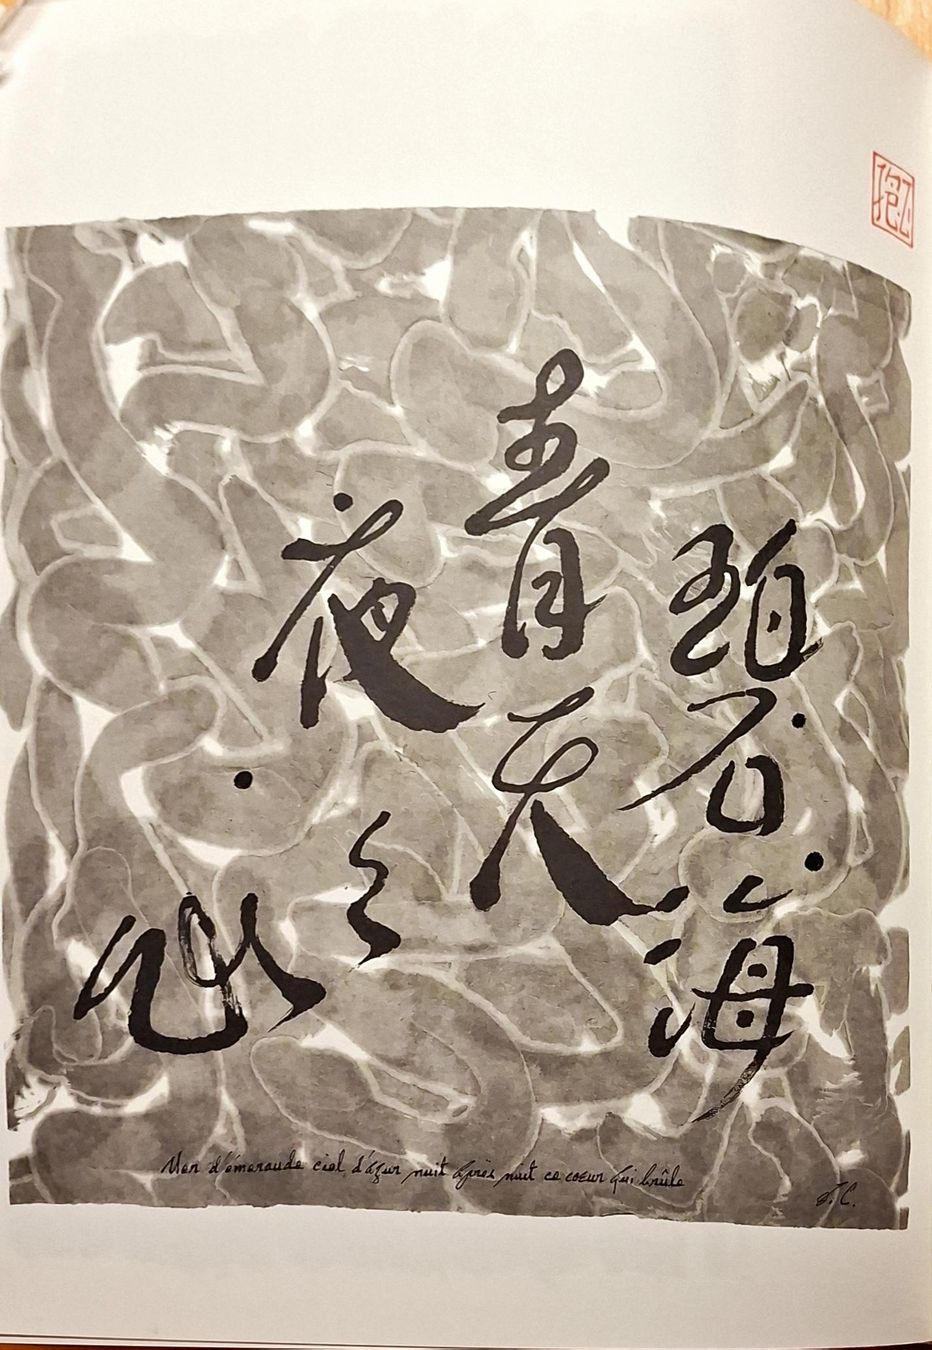 碧海
青天
夜々
心
Mer d'émeraude ciel d'azur nuit après nuit ce cœur qui brûle
F. C.